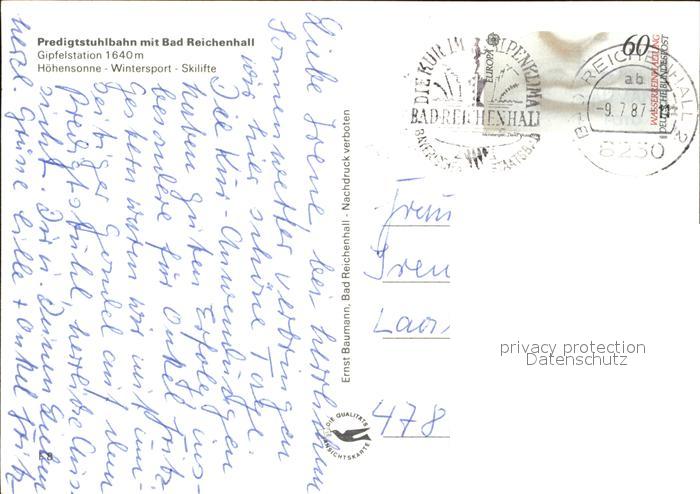 Predigtstuhlbahn mit Bad Reichenhall
Gipfelstation 1640 m
Höhensonne - Wintersport - Skilifte
Liebe Irene, bei herrlichem
Sonnenwetter verbringen
wir hier schöne Tage.
Die Kur-Anwendungen
haben guten Erfolg ins-
besondere für Onkel Fritz.
Gestern waren wir mit
Gondel auf dem
Predigtstuhl, herrliche Aus-
sicht. Dir u. Deinen Lieben
herzl. Grüße Cilla + Onkel Fritz
Ernst Baumann, Bad Reichenhall - Nachdruck verboten
DIE QUALITÄTS
ANSICHTSKARTE
DIE KUR IM ALPENKLIMA
BAD REICHENHALL
BAYER. STAATSBAD
EUROPA
60
WASSERREINHALTUNG
DEUTSCHE BUNDESPOST
BAD REICHENHALL 2
ab
-9.7.87-11
8230
Frau
Iren
478
privacy protection
Datenschutz